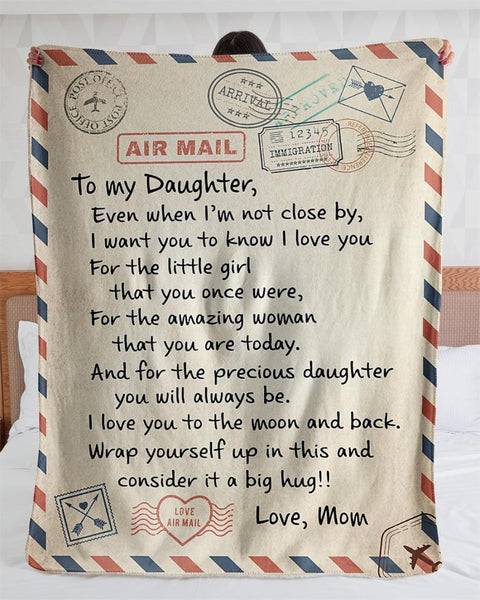 POST OFFICE
POST OFFICE
ARRIVAL
12345
IMMIGRATION
AIR MAIL
To my Daughter,
Even when I'm not close by,
I want you to know I love you
For the little girl
that you once were,
For the amazing woman
that you are today.
And for the precious daughter
you will always be.
I love you to the moon and back.
Wrap yourself up in this and
consider it a big hug!!
Love, Mom
LOVE
AIR MAIL